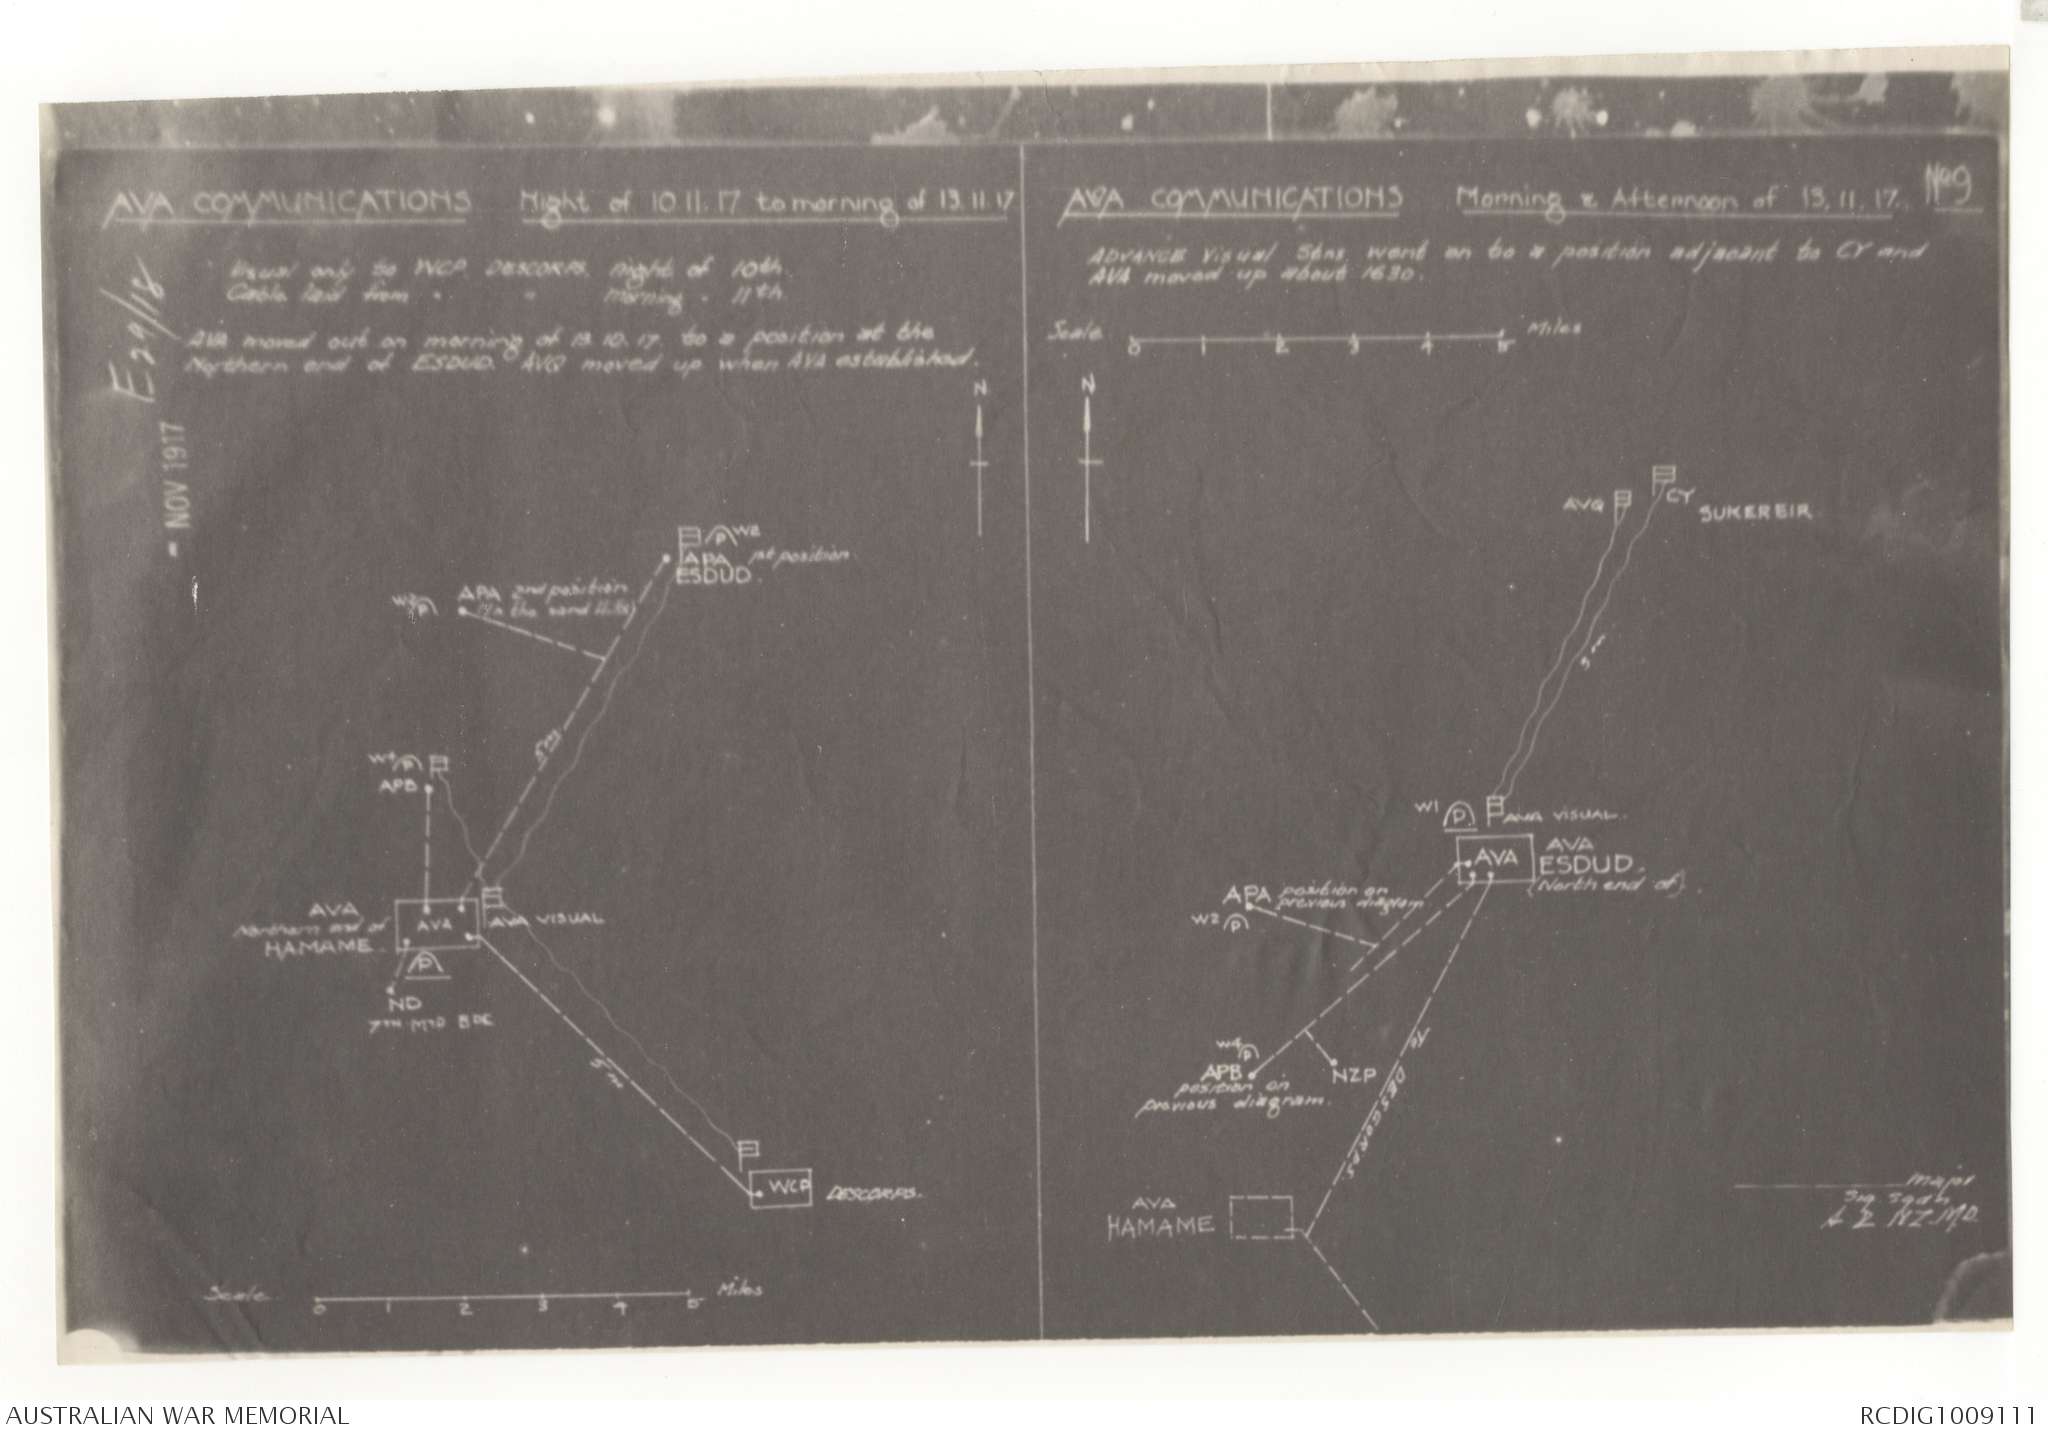 AVA COMMUNICATIONS Night of 10.11.17 to morning of 13.11.17
Visual only to WCP. DESCORPS. night of 10th.
Cable laid from " " morning " 11th.
AVA moved out on morning of 13.10.17. to a position at the
Northern end of ESDUD. AVQ moved up when AVA established.
E29/18
- NOV 1917
N
W2
P
APA 1st position
ESDUD.
APA 2nd position
W2
P
5 m
W4
P
APB
AVA
Northern end of
HAMAME
AVA
AVA VISUAL
P
ND
7TH MTD BDE
5 m
WCP
DESCORPS.
Scale
0 1 2 3 4 5
Miles
AVA COMMUNICATIONS Morning & Afternoon of 13.11.17.
No 9
ADVANCE Visual Stns. went on to a position adjacent to CY and
AVA moved up about 1630.
Scale
0 1 2 3 4 5
Miles
N
AVQ
CY
SUKEREIR
5 m
W1
P
AVA VISUAL.
AVA
AVA
ESDUD.
(North end of).
APA position on
previous diagram
W2
P
W4
P
APB
position on
previous diagram.
NZP
To DESCORPS
AVA
HAMAME
Major
Sig Sqdn
A & NZ. M.D.
AUSTRALIAN WAR MEMORIAL
RCDIG1009111